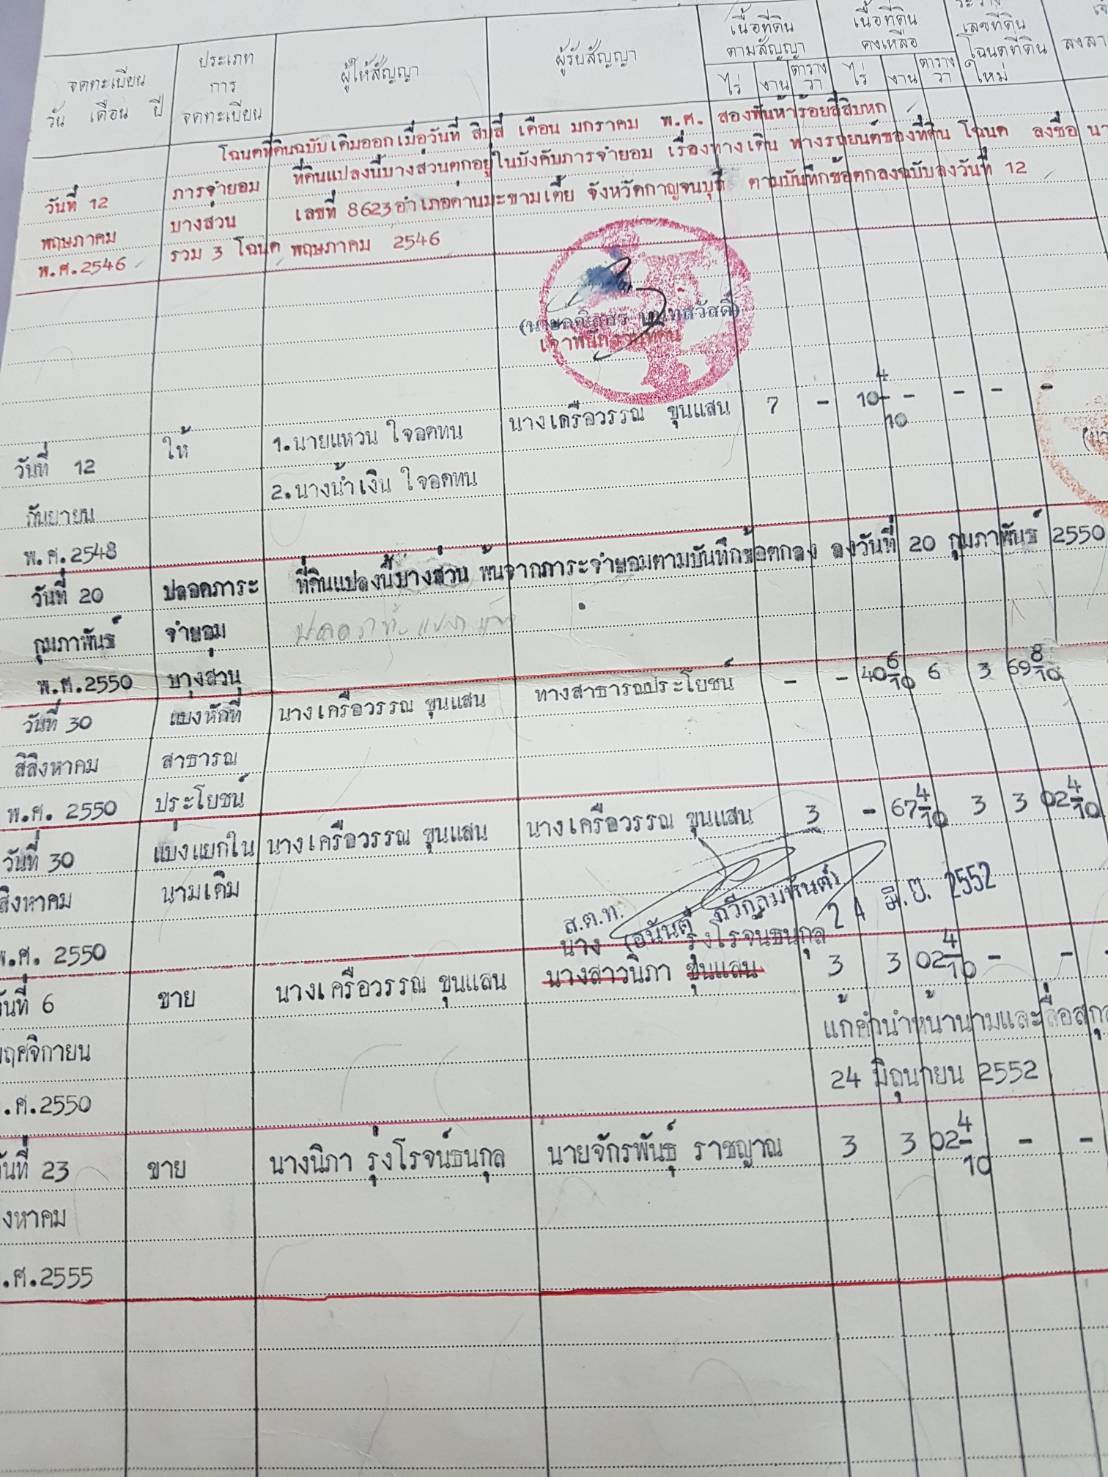 จดทะเบียน
วัน เดือน ปี
ประเภท
การ
จดทะเบียน
ผู้ให้สัญญา
ผู้รับสัญญา
เนื้อที่ดิน
ตามสัญญา
ไร่ งาน ตาราง
วา
เนื้อที่ดิน
คงเหลือ
ไร่ งาน ตาราง
วา
เลขที่ดิน
โฉนดที่ดิน
ใหม่
โฉนดที่ดินฉบับเดิมออกเมื่อวันที่ สิบสี่ เดือน มกราคม พ.ศ. สองพันห้าร้อยสี่สิบหก
วันที่ 12 ภารจำยอม ที่ดินแปลงนี้บางส่วนตกอยู่ในบังคับภารจำยอม เรื่องทางเดิน ทางรถยนต์ของที่ดิน โฉนด ลงชื่อ
พฤษภาคม บางส่วน เลขที่ 8623 อำเภอด่านมะขามเตี้ย จังหวัดกาญจนบุรี ตามบันทึกข้อตกลงฉบับลงวันที่ 12
พ.ศ.2546 รวม 3 โฉนด พฤษภาคม 2546
เจ้าพนักงานที่ดิน
วันที่ 12 ให้ 1.นายแหวน ใจอดทน นางเครือวรรณ ขุนแสน 7 - 10 4/10 - - -
กันยายน 2.นางน้ำเงิน ใจอดทน
พ.ศ.2548
วันที่ 20 ปลอดภาระ ที่ดินแปลงนี้บางส่วน พ้นจากภาระจำยอมตามบันทึกข้อตกลง ลงวันที่ 20 กุมภาพันธ์ 2550
กุมภาพันธ์ จำยอม
พ.ศ.2550 บางส่วน
วันที่ 30 แบ่งหักที่ นางเครือวรรณ ขุนแสน ทางสาธารณประโยชน์ - - 40 6/10 6 3 69 8/10
สิสิงหาคม สาธารณ
พ.ศ. 2550 ประโยชน์
วันที่ 30 แบ่งแยกใน นางเครือวรรณ ขุนแสน นางเครือวรรณ ขุนแสน 3 - 67 4/10 3 3 02 4/10
สิงหาคม นามเดิม
พ.ศ. 2550
ส.ต.ท.
24 มิ.ย. 2552
นาง รุ่งโรจน์ธนกุล
วันที่ 6 ขาย นางเครือวรรณ ขุนแสน นางสาวนิภา ขุนแสน 3 3 02 4/10 - -
พฤศจิกายน แก้คำนำหน้านามและชื่อสกุล
พ.ศ.2550 24 มิถุนายน 2552
วันที่ 23 ขาย นางนิภา รุ่งโรจน์ธนกุล นายจักรพันธุ์ ราชญาณ 3 3 02 4/10 - -
สิงหาคม
พ.ศ.2555